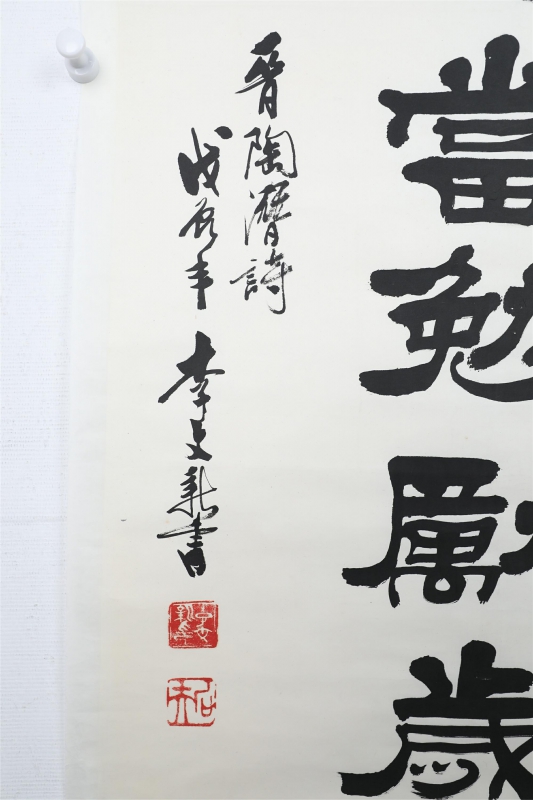 當勉勵歲
晉陶潛詩
戊辰年
李文新書